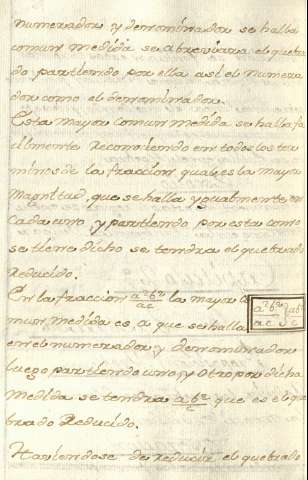 numerador y denominador se halla
comun medida se abreviara el quebra
do partiendo por ella asi el numera
dor como el denominador.
Esta mayor comun medida se halla fa
cilmente reconociendo en todos los ter
minos de la fraccion qual es la mayor
magnitud, que se halla ygualmente en
cada uno, y partiendo por esta como
se tiene dicho se tendra el quebrado
reducido.
En la fraccion a²b²/ac la mayor co
mun medida es a que se halla
en el numerador y denominador
luego partiendo uno, y otro por dicha
medida se tendra ab²/c que es el que
brado reducido.
Haviendose de reducir el quebrado